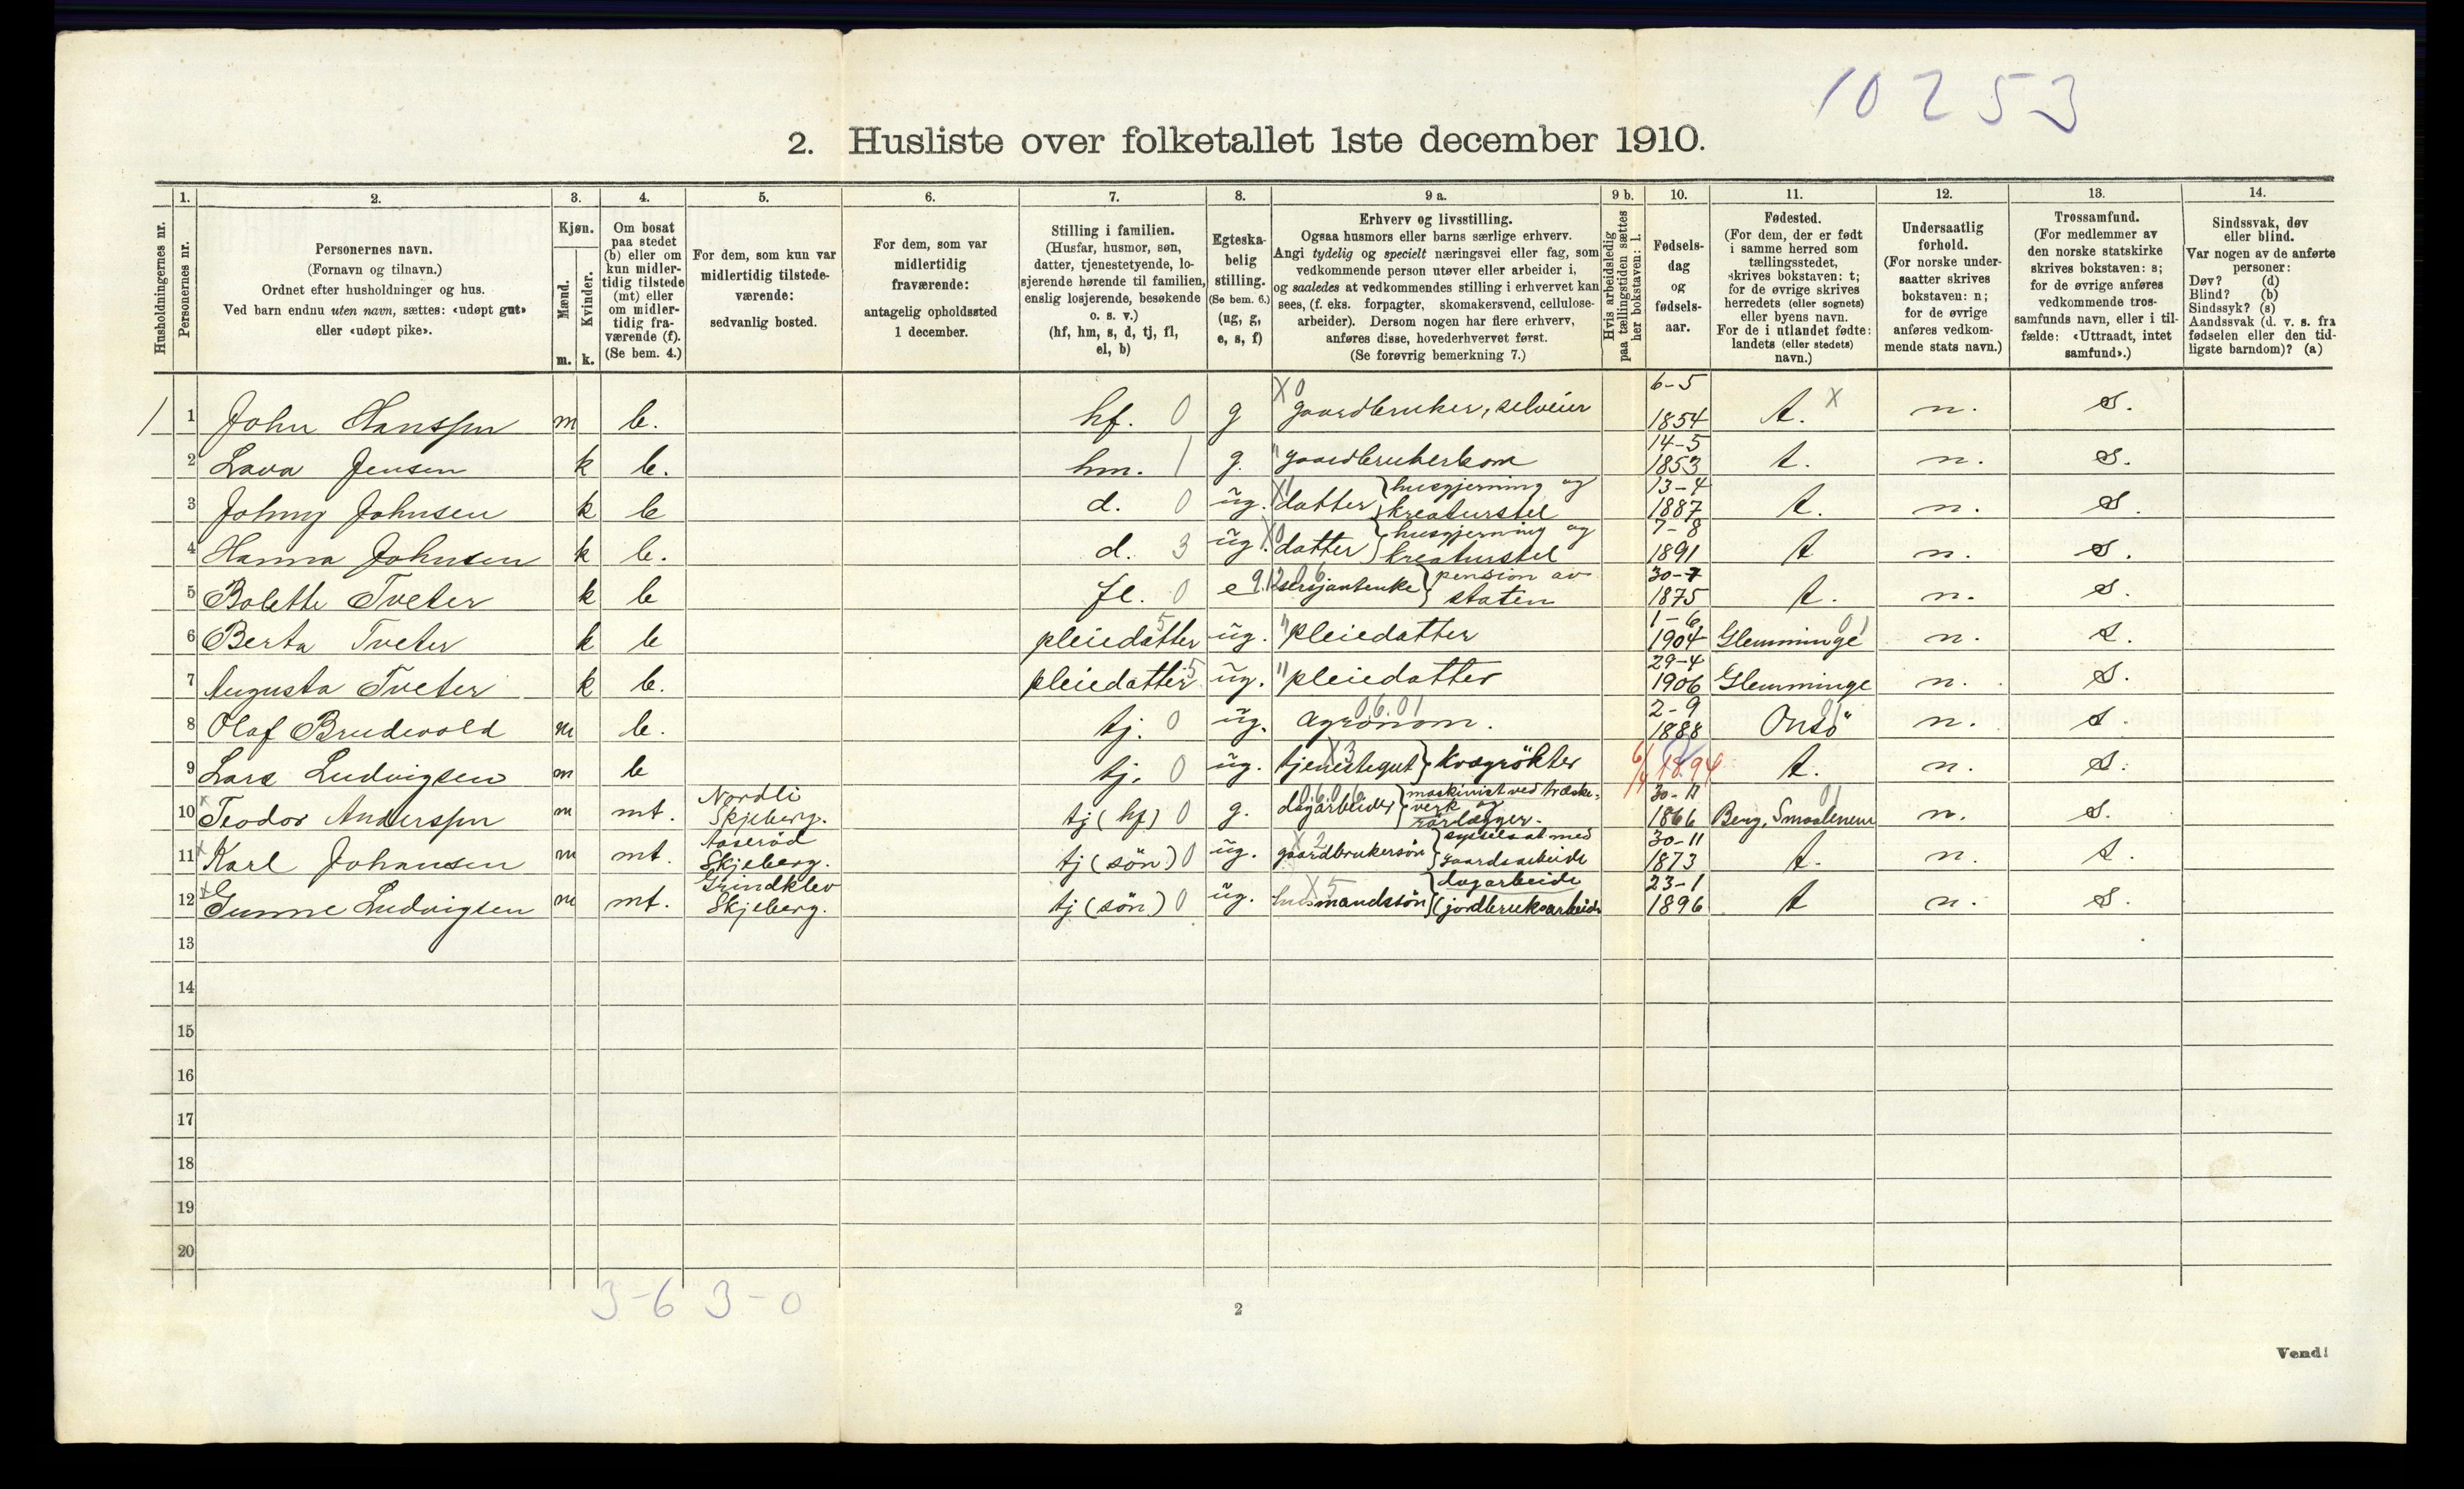 10253
2. Husliste over folketallet 1ste december 1910.
Husholdningernes nr.
1. Personernes nr.
2. Personernes navn.
(Fornavn og tilnavn.)
Ordnet efter husholdninger og hus.
Ved barn endnu uten navn, sættes: «udøpt gut»
eller «udøpt pike».
3. Kjøn.
Mænd. m.
Kvinder. k.
4. Om bosat
paa stedet
(b) eller om
kun midler-
tidig tilstede
(mt) eller
om midler-
tidig fra-
værende (f).
(Se bem. 4.)
5. For dem, som kun var
midlertidig tilstede-
værende:
sedvanlig bosted.
6. For dem, som var
midlertidig
fraværende:
antagelig opholdssted
1 december.
7. Stilling i familien.
(Husfar, husmor, søn,
datter, tjenestetyende, lo-
sjerende hørende til familien,
enslig losjerende, besøkende
o. s. v.)
(hf, hm, s, d, tj, fl,
el, b)
8. Egteska-
belig
stilling.
(Se bem. 6.)
(ug, g,
e, s, f)
9 a. Erhverv og livsstilling.
Ogsaa husmors eller barns særlige erhverv.
Angi tydelig og specielt næringsvei eller fag, som
vedkommende person utøver eller arbeider i,
og saaledes at vedkommendes stilling i erhvervet kan
sees, (f. eks. forpagter, skomakersvend, cellulose-
arbeider). Dersom nogen har flere erhverv,
anføres disse, hovederhvervet først.
(Se forøvrig bemerkning 7.)
9 b. Hvis arbeidsledig
paa tællingstiden sættes
her bokstaven: l.
10. Fødsels-
dag
og
fødsels-
aar.
11. Fødested.
(For dem, der er født
i samme herred som
tællingsstedet,
skrives bokstaven: t;
for de øvrige skrives
herredets (eller sognets)
eller byens navn.
For de i utlandet fødte:
landets (eller stedets)
navn.)
12. Undersaatlig
forhold.
(For norske under-
saatter skrives
bokstaven: n;
for de øvrige
anføres vedkom-
mende stats navn.)
13. Trossamfund.
(For medlemmer av
den norske statskirke
skrives bokstaven: s;
for de øvrige anføres
vedkommende tros-
samfunds navn, eller i til-
fælde: «Uttraadt, intet
samfund».)
14. Sindssvak, døv
eller blind.
Var nogen av de anførte
personer:
Døv? (d)
Blind? (b)
Sindssyk? (s)
Aandssvak (d. v. s. fra
fødselen eller den tid-
ligste barndom)? (a)
1 1 John Hanssen m b. hf. 0 g X0 gaardbruker, selveier 6-5 1854 t. X n. s.
2 Lava Jensen k b. hm. 1 g. " gaardbrukerkone 14-5 1853 t. n. s.
3 Johny Johnsen k b d. 0 ug. X1 datter } husgjerning og kreaturstel 13-4 1887 t. n. s.
4 Hanna Johnsen k b. d. 3 ug. X0 datter } husgjerning og kreaturstel 7-8 1891 t n. s.
5 Bolette Tveter k b fl. 0 e 9.12.06 sersjantenke } pension av staten 30-7 1875 t. n. s.
6 Berta Tveter k b pleiedatter 5 ug. " pleiedatter 1-6 1904 Glemminge 01 n. s.
7 Augusta Tveter k b. pleiedatter 5 ug. " pleiedatter 29-4 1906 Glemminge n. s.
8 Olaf Brudevold m b. tj. 0 ug. 06.01 agronom. 2-9 1888 Onsö 01 n. s.
9 Lars Ludvigsen m b tj. 0 ug. X3 tjenestegut } kvægrökter 1894 t. n. s.
10 x Teodor Anderssen m mt. Nordli Skjeberg. tj (hf) 0 g. dagarbeider } maskinist ved træske- verk og rörlægger. 30-11 1866 Berg, Smaalenene 01 n. s.
11 x Karl Johansen m mt. Aaseröd Skjeberg. tj (sön) 0 ug. X2 gaardbrukersön } sysselsat med gaardsarbeide 30-11 1873 t. n. s.
12 x Gunne Ludvigsen m mt. Grindklev Skjeberg. tj (sön) 0 ug. X5 husmandssön } dagarbeide (jordbruksarbeide 23-1 1896 t n. s.
13
14
15
16
17
18
19
20
3-6 3-0
2
Vend!